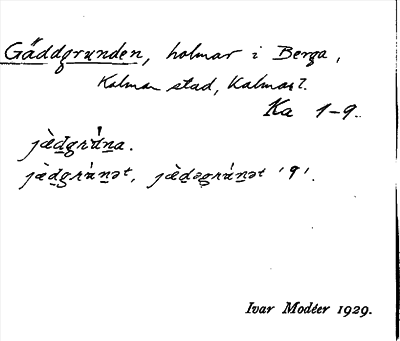 Gäddgrunden, holmar i Berga,
Kalmar stad, Kalmar l.
Ka 1-9.
jæ̀d̲grún̲a.
jæ̀d̲grún̲ət, jæ̀d̲əgrún̲ət '9'.
Ivar Modéer 1929.